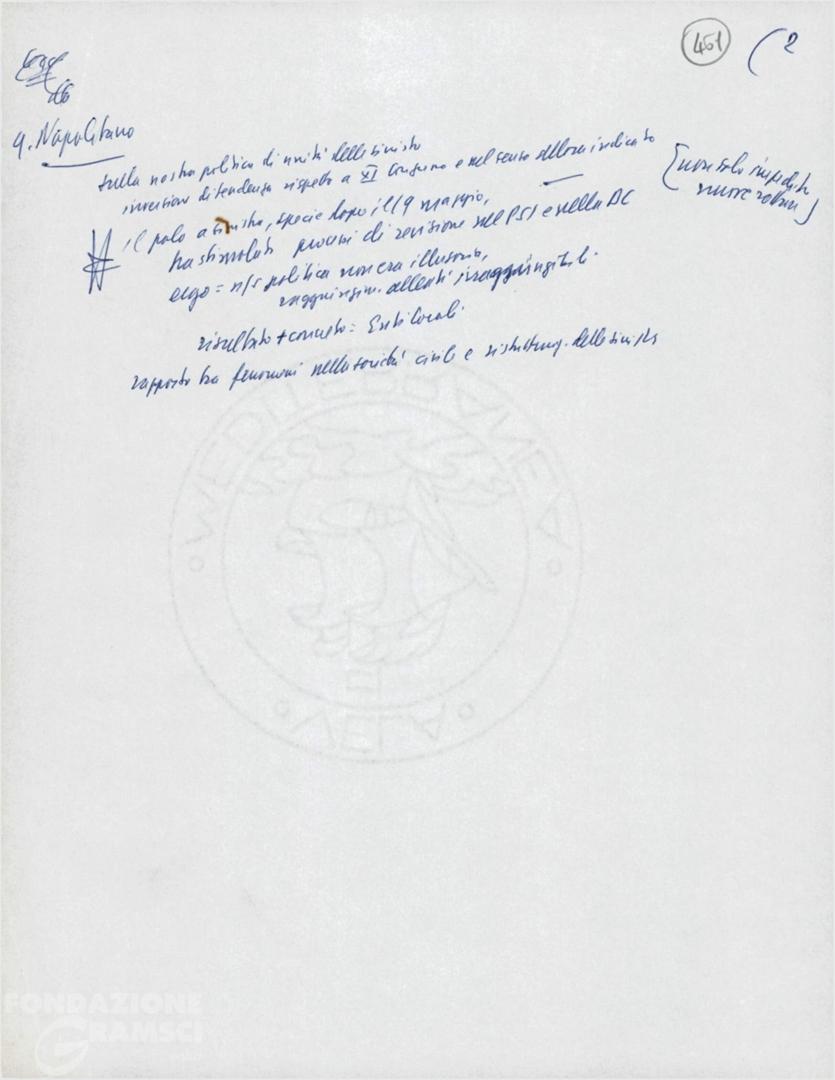 451 (2
G. Napolitano
sulla nostra politica di unità delle sinistre
inversione di tendenza rispetto a XI Congresso e nel senso allora indicato
[non solo impedito nuove rotture]
il polo a sinistra, specie dopo il 19 maggio,
ha stimolato processi di revisione nel PSI e nella DC
ergo = n/s politica non era illusoria,
raggiungim. alleati irraggiungibili.
risultato + concreto = Enti locali
rapporto tra fenomeni nella società civile e ristrutturaz. delle sinistre
MEDITERRANEA
VELA
FONDAZIONE
GRAMSCI